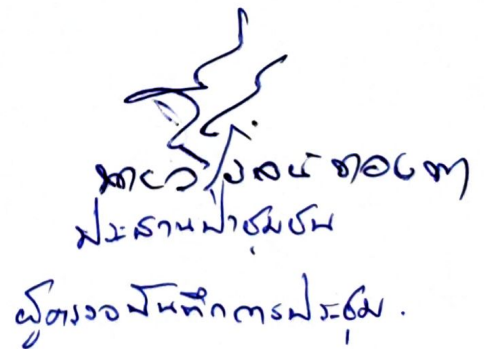 นายวิโรจน์ ทองทา
ประธานป่าชุมชน
ผู้ตรวจบันทึกการประชุม.